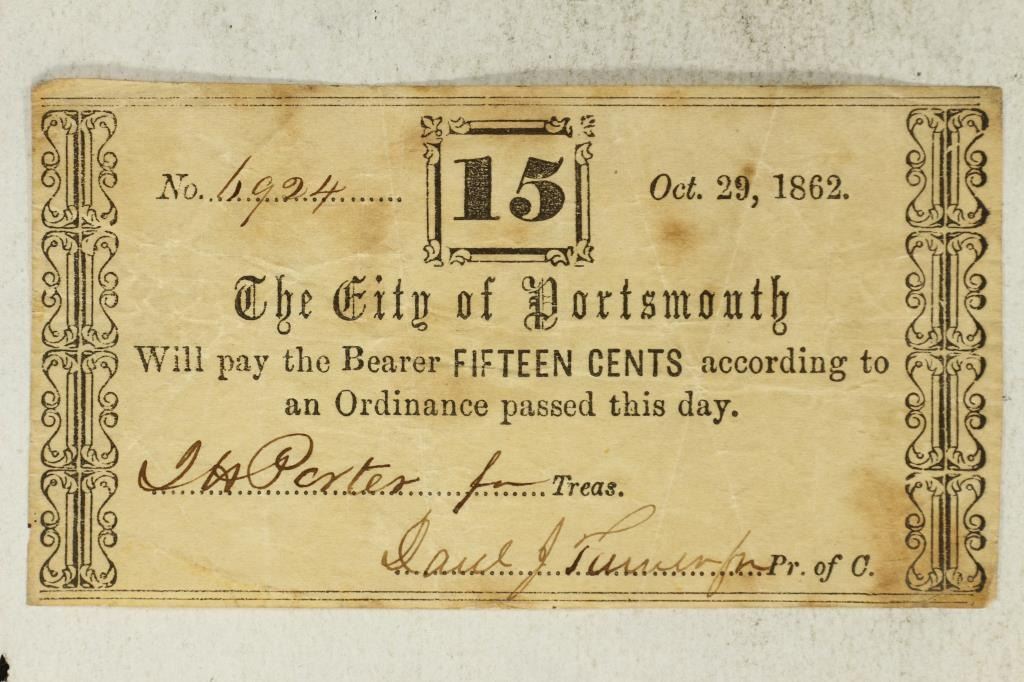 No. 6924
15
Oct. 29, 1862.
The City of Portsmouth
Will pay the Bearer FIFTEEN CENTS according to
an Ordinance passed this day.
J H Porter for Treas.
Danl J Turner for Pr. of C.